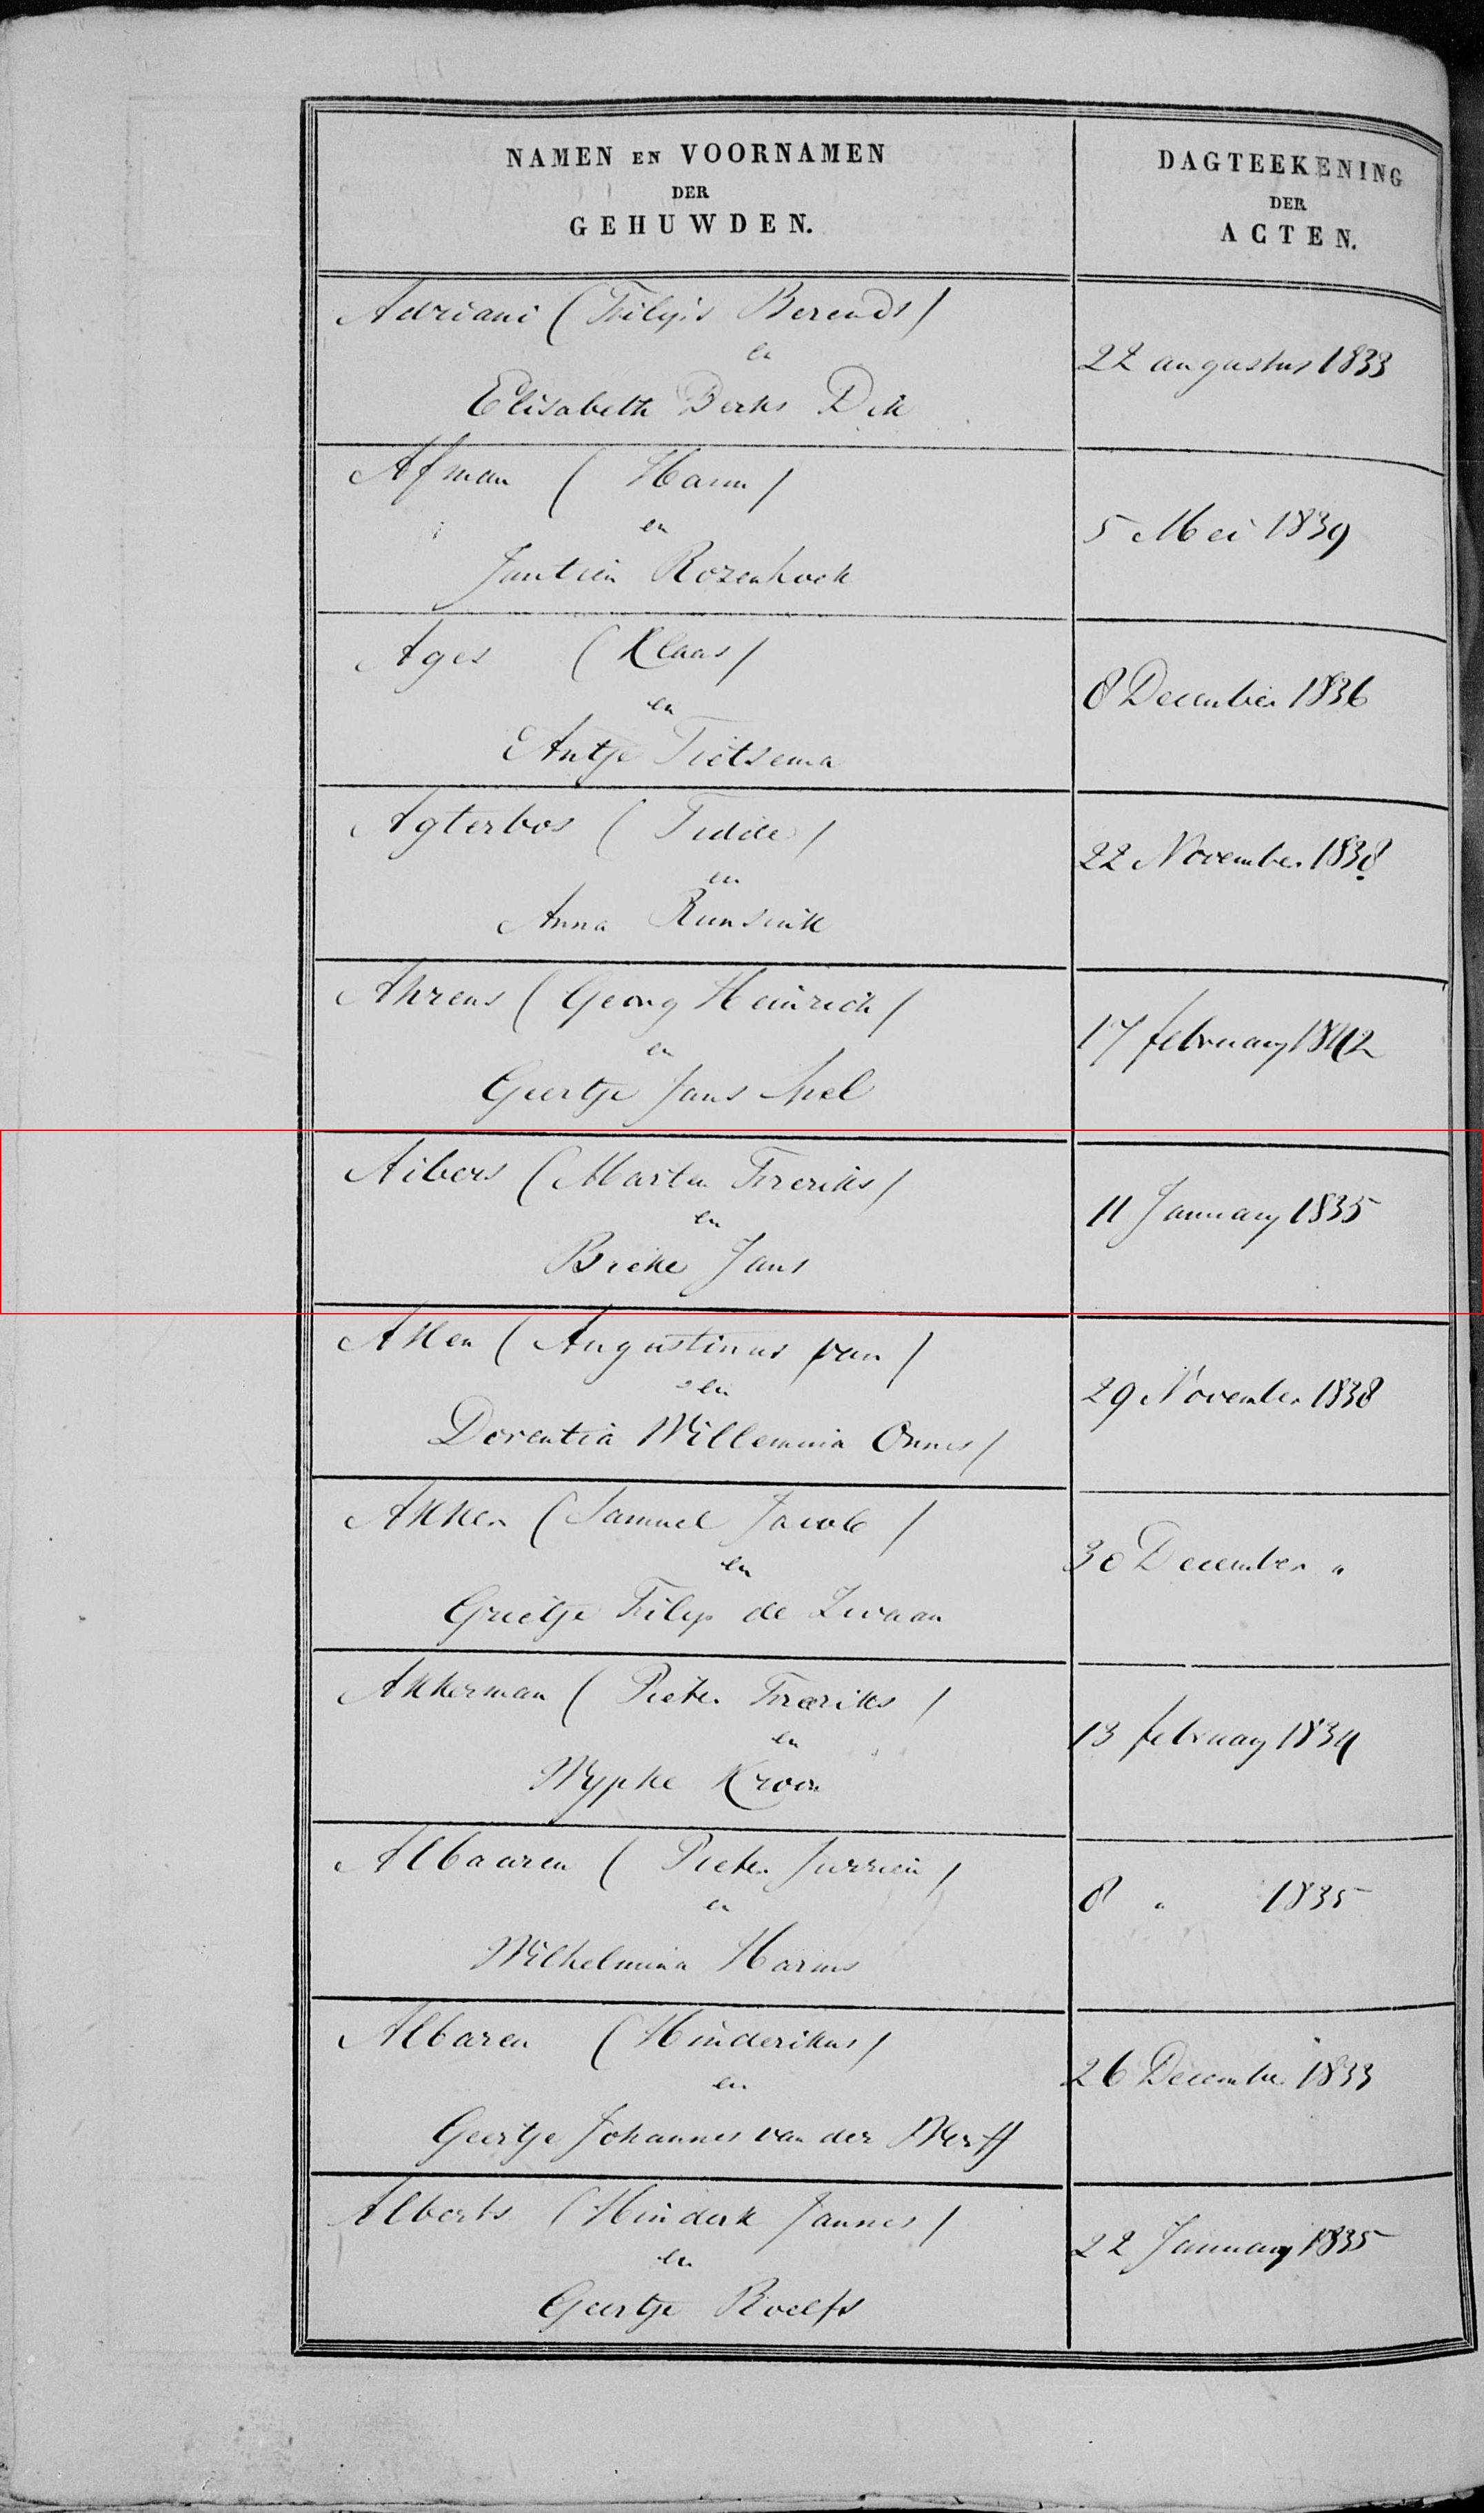 NAMEN EN VOORNAMEN
DER
GEHUWDEN.
DAGTEEKENING
DER
ACTEN.
Adriani (Filips Berends)
en
Elisabeth Derks Dik
22 augustus 1833
Afman (Harm)
en
Jantien Rozenhoek
5 Mei 1839
Ages (Klaas)
en
Antje Tietsema
8 December 1836
Agterbos (Tidde)
en
Anna Runsink
22 November 1838
Ahrens (Georg Heinrich)
en
Geertje Jans Apel
17 february 1842
Aibers (Marten Freriks)
en
Brike Jans
11 January 1835
Aken (Augustinus van)
en
Dorentia Willemina Onnes)
29 November 1838
Akker (Samuel Jacob)
en
Grietje Filip de Zwaan
30 December "
Akkerman (Pieter Freriks)
en
Wypke Kroon
13 february 1834
Albaaren (Pieter Jurrien)
en
Wilhelmina Harms
8 " 1835
Albaren (Hinderikus)
en
Geertje Johannes van der Werff
26 December 1833
Alberts (Hinderk Jannes)
en
Geertje Roelfs
22 January 1835